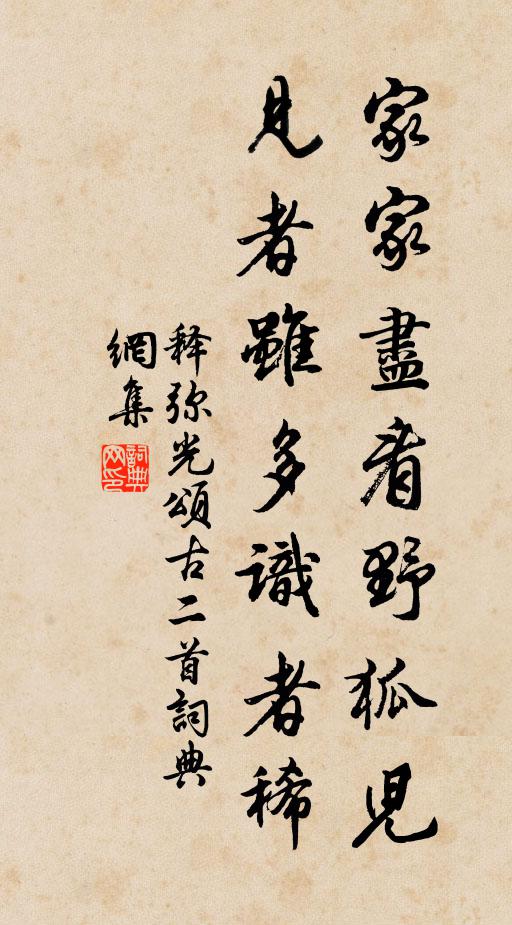 家家盡看野狐兒
見者雖多識者稀
释弥光頌古二首詞典
網集
詞典网印